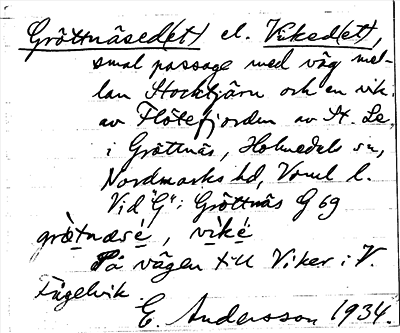 Gröttnäsed(et) el. Viked(et),
smal passage med väg mel-
lan Stocktjärn och en vik
av Flötefjorden av St. Le,
i Gröttnäs, Holmedals sn,
Nordmarks hd, Vrml l.
Vid "G": Gröttnäs G 69
grø̀tnæsé, vìké
På vägen till Viker i V.
Fågelvik.
E. Andersson 1934.